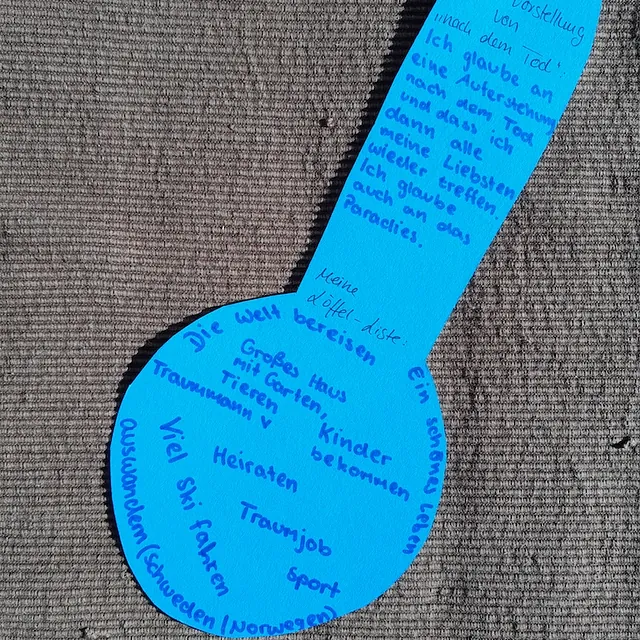 Vorstellung
von
"nach dem Tod":
Ich glaube an
eine Auferstehung
nach dem Tod
und dass ich
dann alle
meine Liebsten
wieder treffen.
Ich glaube
auch an das
Paradies.
Meine
Löffel-Liste:
Die Welt bereisen
Großes Haus
mit Garten,
Tieren
Traummann v
Kinder
bekommen
Ein schönes Leben
Viel Ski fahren
Heiraten
Traumjob
Sport
auswandern (Schweden (Norwegen)